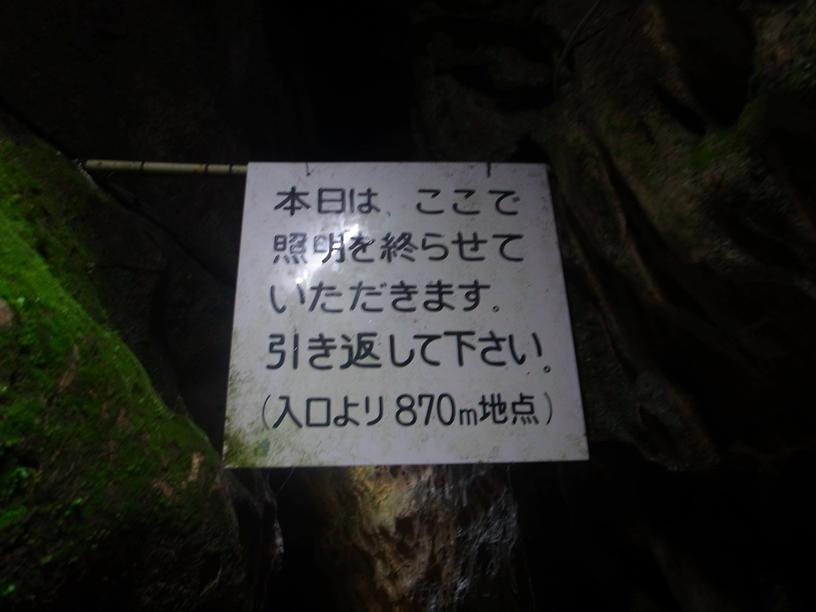 本日は、ここで
照明を終らせて
いただきます。
引き返して下さい。
(入口より870m地点)